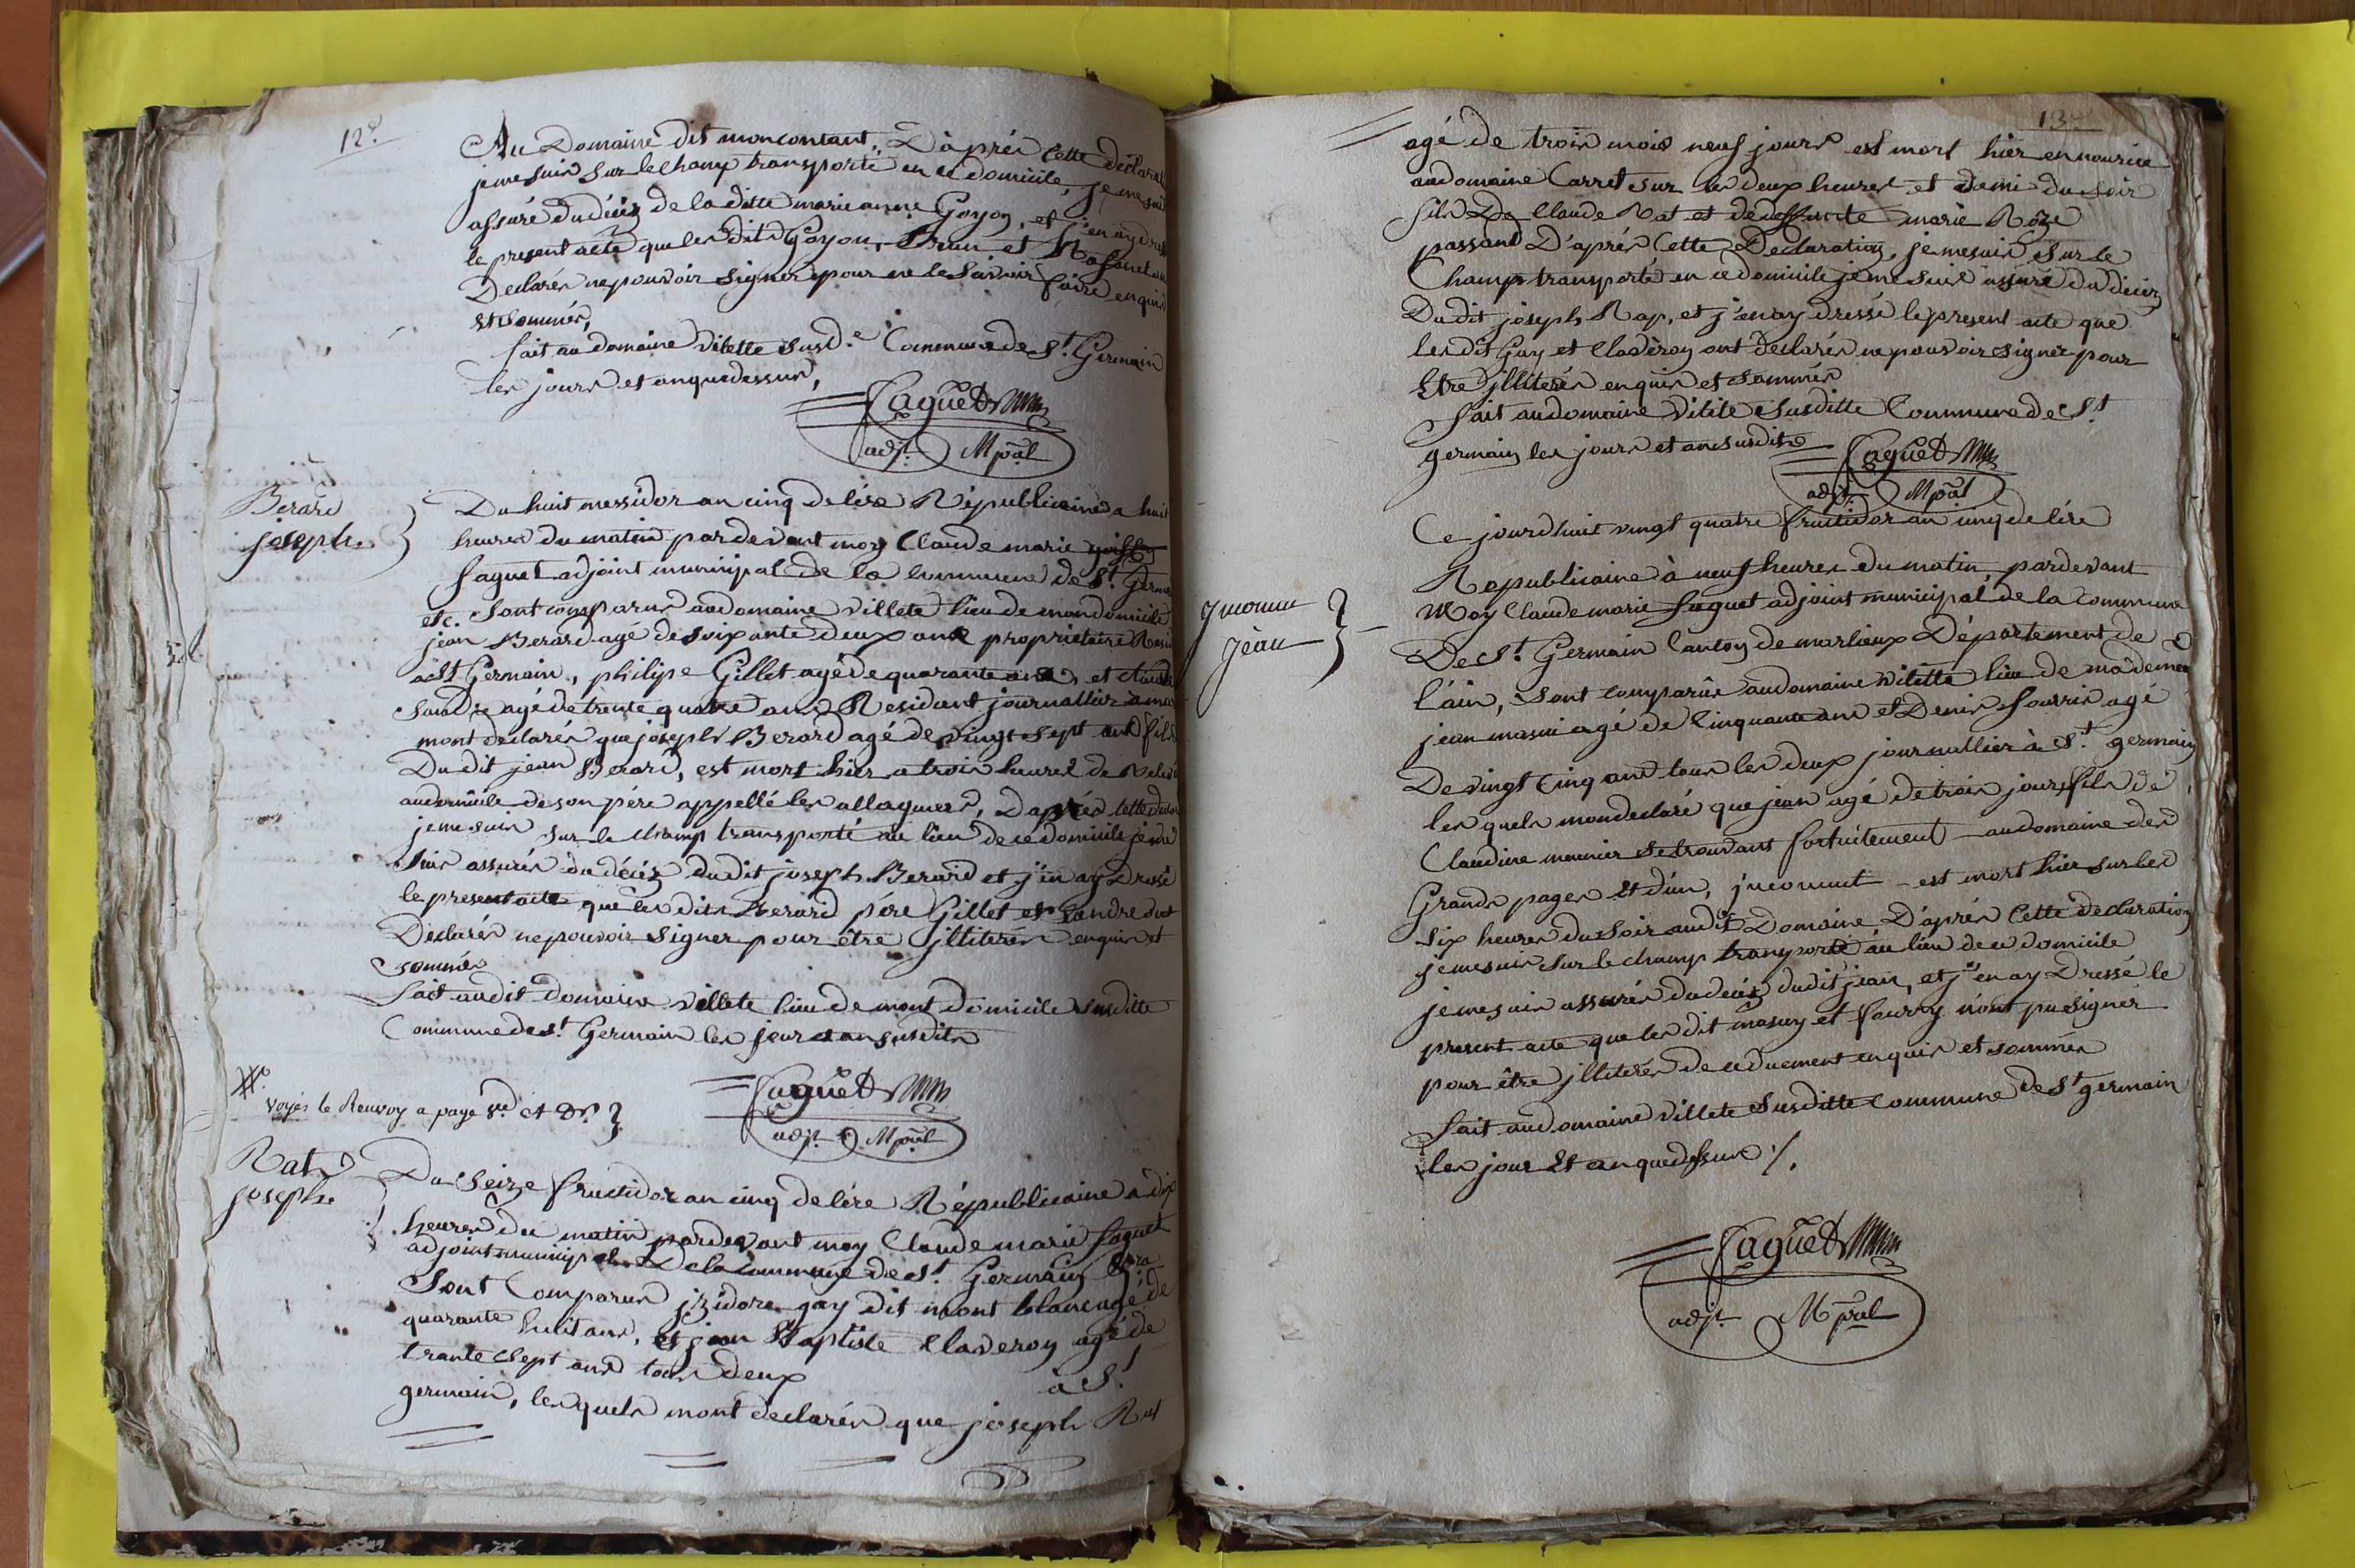 12e
Au Domaine dit moncontant, D'àprés Cette déclarat
jeme suis sur le champ transporté en ce domicile, je me sui
assuré du décéz de la ditte marie anne Goyon, et j'en ay dres
le present acte que les dits Goyon, et
Declarés ne pouvoir signer pour ne le sçavoir faire enquis
et sommés,
fait au domaine Vilette susd.e Commune de St. Germain
les jours et an que dessus,
Faguet
adjt. Mpal
Berard
joseph
Du huit messidor an cinq de lére Républicaine a huit
heures du matin pardevant moy Claude marie
faguet adjoint municipal de la commune de St. Germ
etc. sont comparus au domaine villete lieu de mon domicile
jean Berard agé de soixante deux ans propriétaire
à St Germain, philipe Gillet agé de quarante ans, et claude
Sandre agé de trente quatre ans Residant journallier a
mont declarés que joseph Berard agé de vingt sept ans fils
Du dit jean Berard, est mort hier a trois heures de
au domicile de son pére appellé les allagniers, D'aprés cette
jeme suis sur le champ transporté au lieu de ce domicile je me
suis assurés du décéz dudit joseph Berard et j'en ay Dressé
le present acte que les dits Berard pére Gillet et Sandre ont
Déclarés ne pouvoir signer pour être jlliterés enquis et
sommés
fait audit Domaine villete lieu de mont Domicile susditte
Commune de St. Germain les jour et an susdits
Faguet
adjt. Mpal
voyés le Renvoy a page
Rat
joseph
Du seize fructidor an cinq de lére Républicaine a dix
heures du matin pardevant moy Claude marie faguet
adjoint municipal De la Commune de St. Germain
Sont Comparus jzidore gay dit mont blanc agé de
quarante huit ans, et jean Baptiste Claveroy agé de
trante sept ans tous deux à St.
germain, les quels mont declarés que joseph Rat
13e
agé de trois mois neuf jours est mort hier en nourice
au domaine Carret sur les deux heures et demi du soir
fils De Claude Rat et de deffuncte marie Rôze
passand D'aprés Cette Declaration, je me suis sur le
Champ transporté en ce domicile je me suis assuré du décéz
Du dit joseph Rap, et j'en ay dressé le present acte que
les dit Gay et Claveroy ont declarés ne pouvoir signer pour
Etre jlliterés enquis et sommés
fait au domaine Vilite susditte Commune de St.
germain les jours et an susdits
Faguet
adjt. Mpal
jnconnu
jean
Ce jourdhuit vingt quatre fructidor an cinq de lére
Republicaine à neuf heures du matin pardevant
Moy Claude marie faguet adjoint municipal de la Commune
De St. Germain Canton de marlieux Département de
l'ain, sont comparûs au domaine vilette lieu de ma deme
jean masui agé de Cinquante ans et Denis fourris agé
De vingt Cinq ans tous les deux journallier à St. germain
les quels mon declaré que jean agé de trois jours fils de
Claudine meunier se trouvant fortuitement au domaine des
Grands pages et d'un, jnconnut est mort hier sur les
six heures du soir audt Domaine D'aprés Cette declaration
je me suis sur le champ transporté au lieu de ce domicile
je me suis assurés du décéz dudit jean, et j'en ay Dressé le
present acte que les dit masuy et fourry n'ont pu signér
pour être jlliterés de ce duement enquis et sommés
fait au domaine villete susditte commune de St germain
les jour Et an que dessus ./.
Faguet
adjt. Mpal